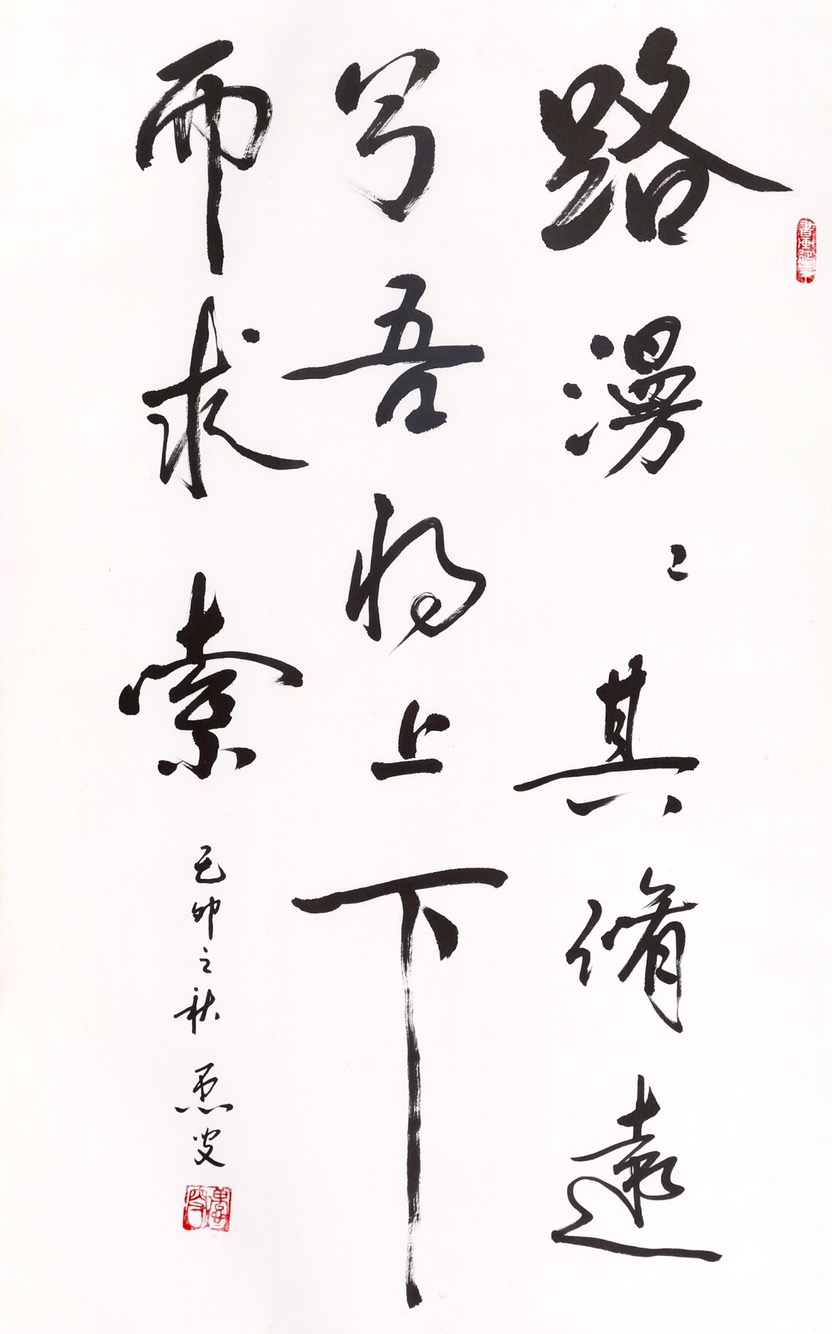 路漫〻其脩遠
兮吾将上下
而求索
己卯之秋